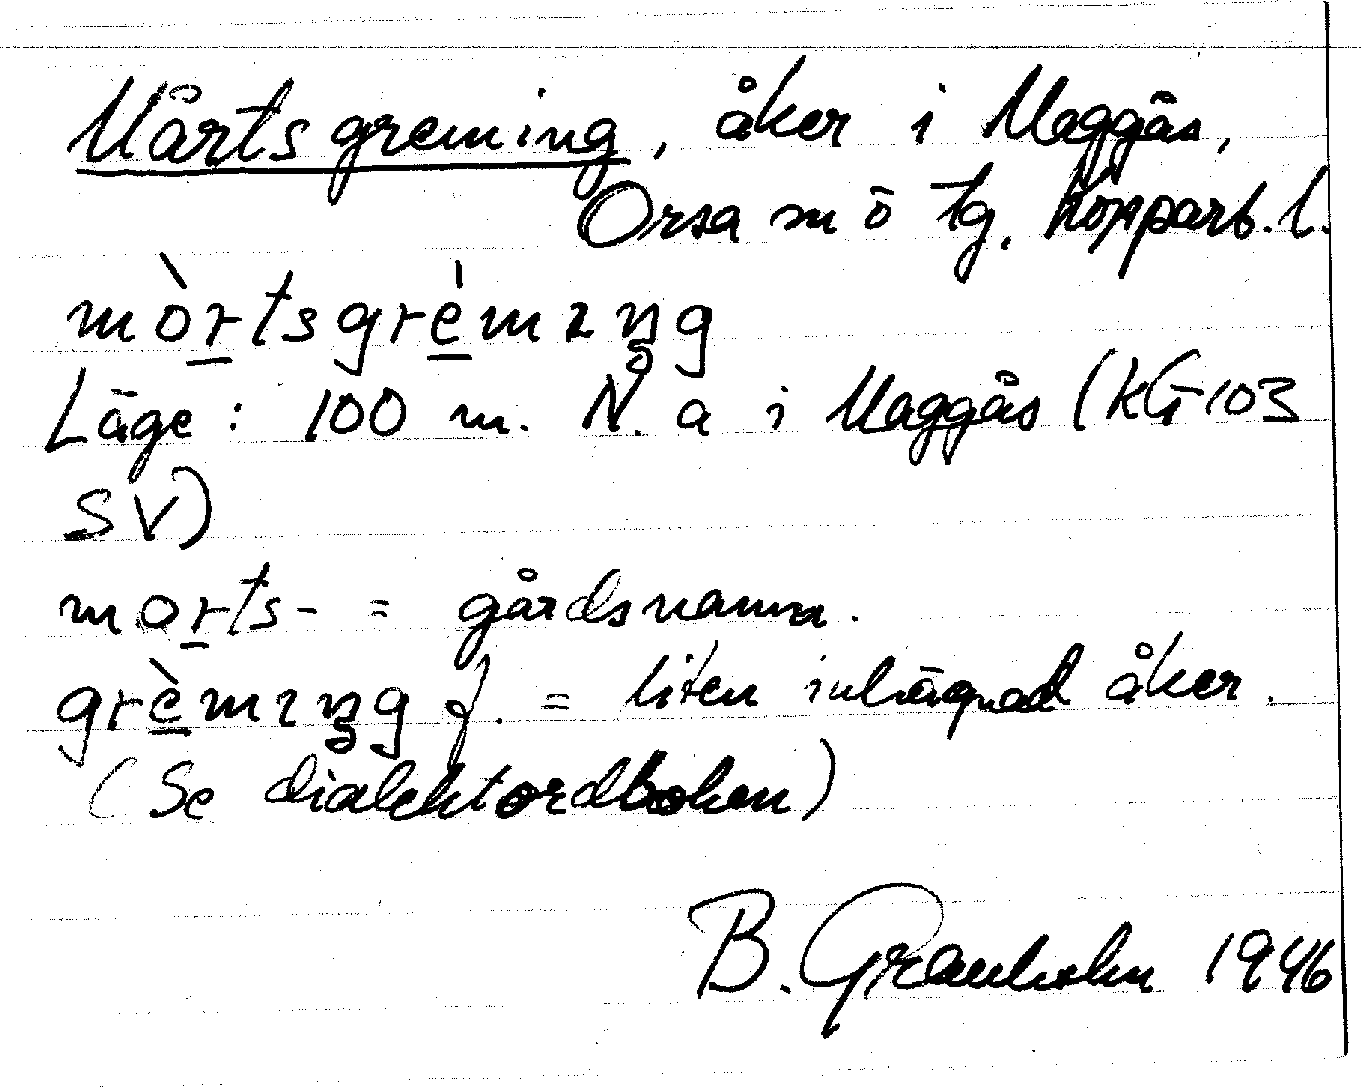 Mårtsgreming, åker i Maggås,
Orsa sn ö tg. Kopparb. l.
mòrtsgrèmıŋg
Läge: 100 m. N. a i Maggås (KG-103
SV)
morts- = gårdsnamn.
grèmıŋg f. = liten inhägnad åker.
(Se dialektordboken)
B. Granholm 1946